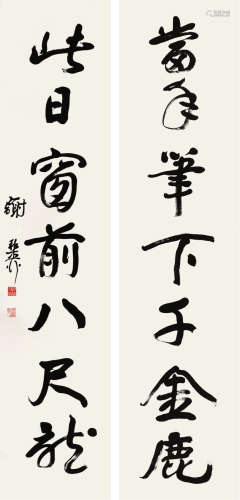 當年筆下千金鹿
此日窗前八尺龍
謝無量